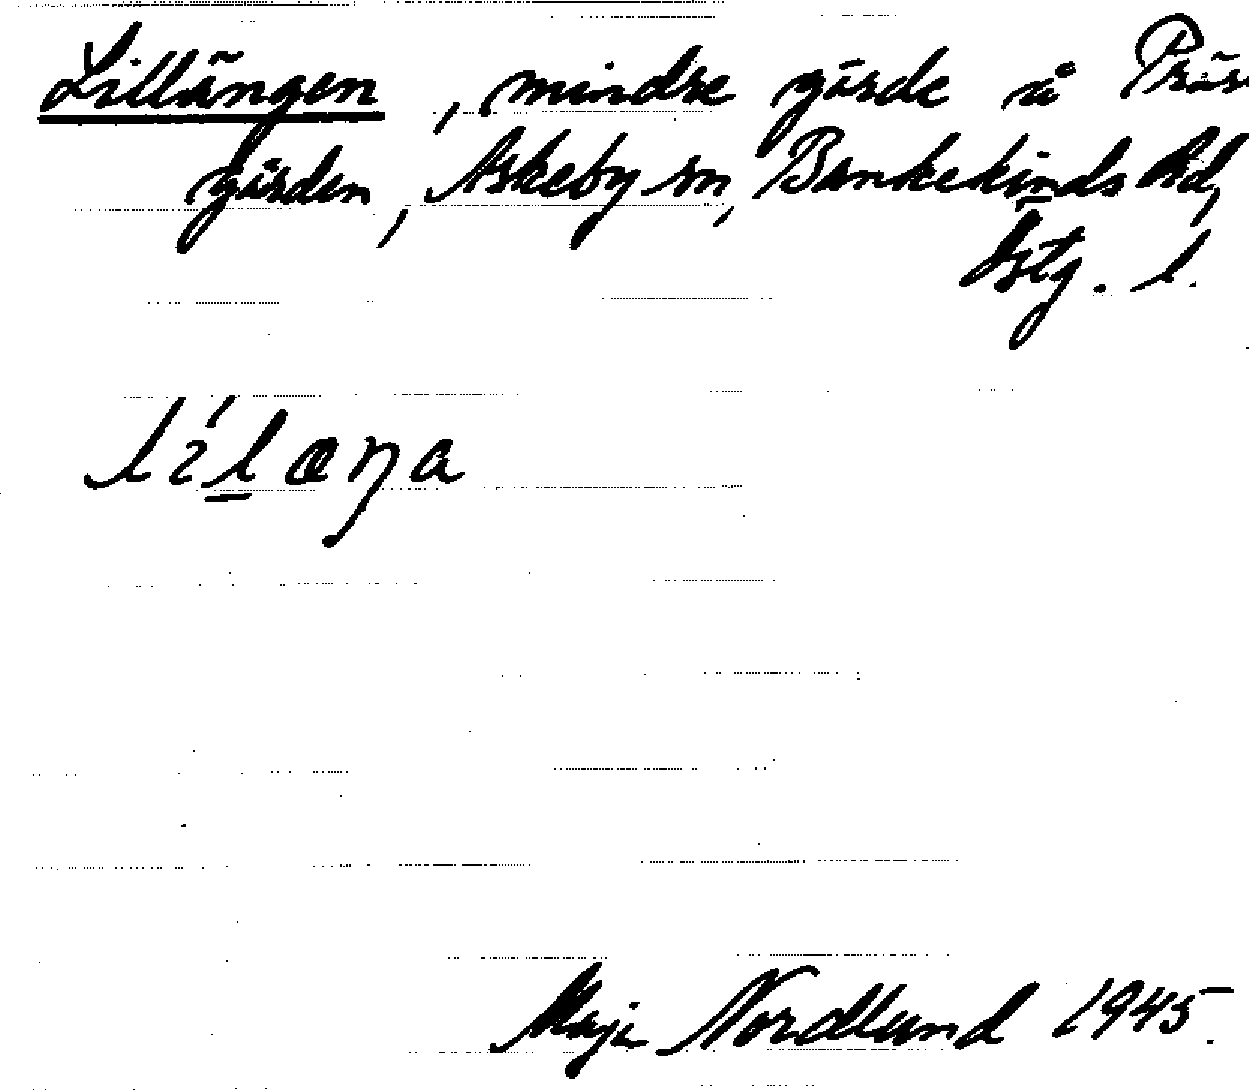 Lillängen, mindre gärde å Präs
gården, Askeby sn, Bankekinds hd,
Östg. l.
lílæŋa
Maja Nordlund 1945.